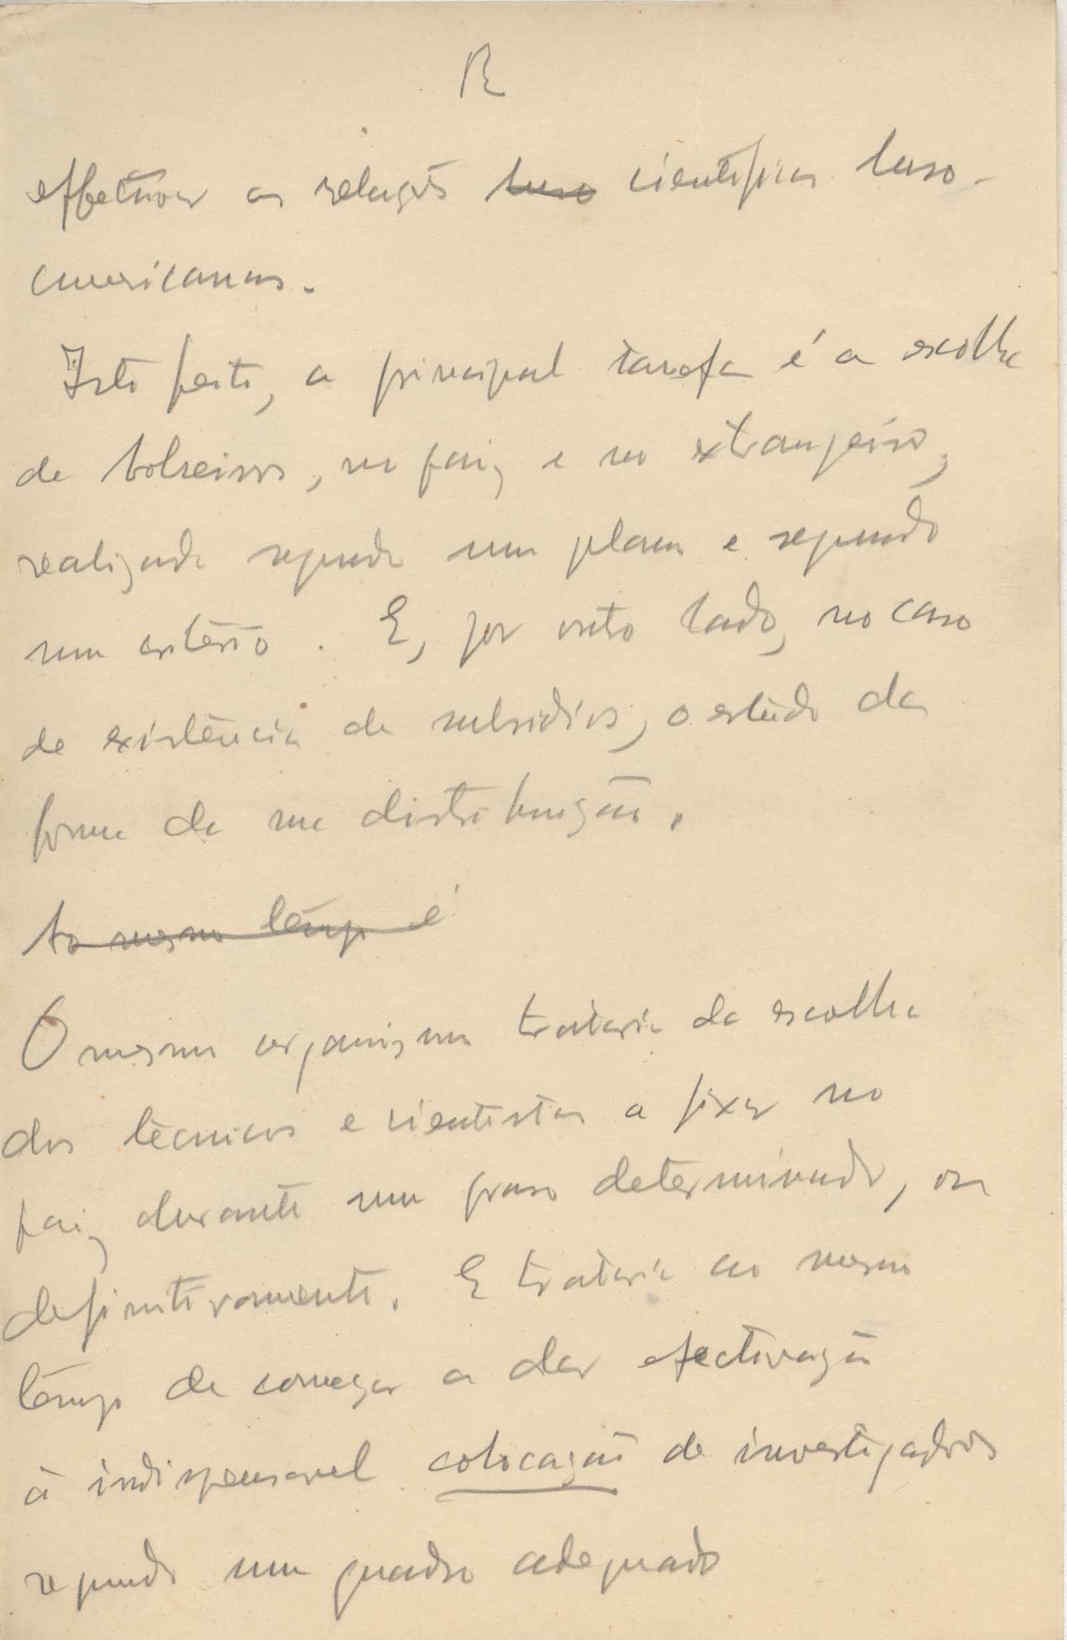 R
effectivar as relações luso cientificas luso-
americanas.
Isto feito, a principal tarefa é a escolha
de bolseiros, no paiz e no extrangeiro,
realizada segundo um plano e segundo
um critério. E, por outo lado, no caso
de existência de subsidios, o estudo da
forma da sua distribuição.
Ao mesmo tempo é
O mesmo organismo trataria da escolha
dos técnicos e cientistas a fixar no
paiz durante um praso determinado, ou
definitivamente. E trataria ao mesmo
tempo de começar a dar efectivação
à indispensavel colocação de investigadores
segundo um quadro adequado